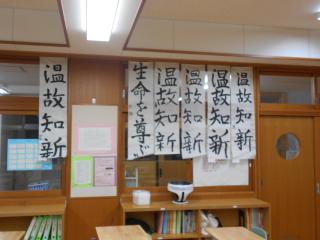 温故知新
生命を尊ぶ
温故知新
温故知新
温故知新
温故知新